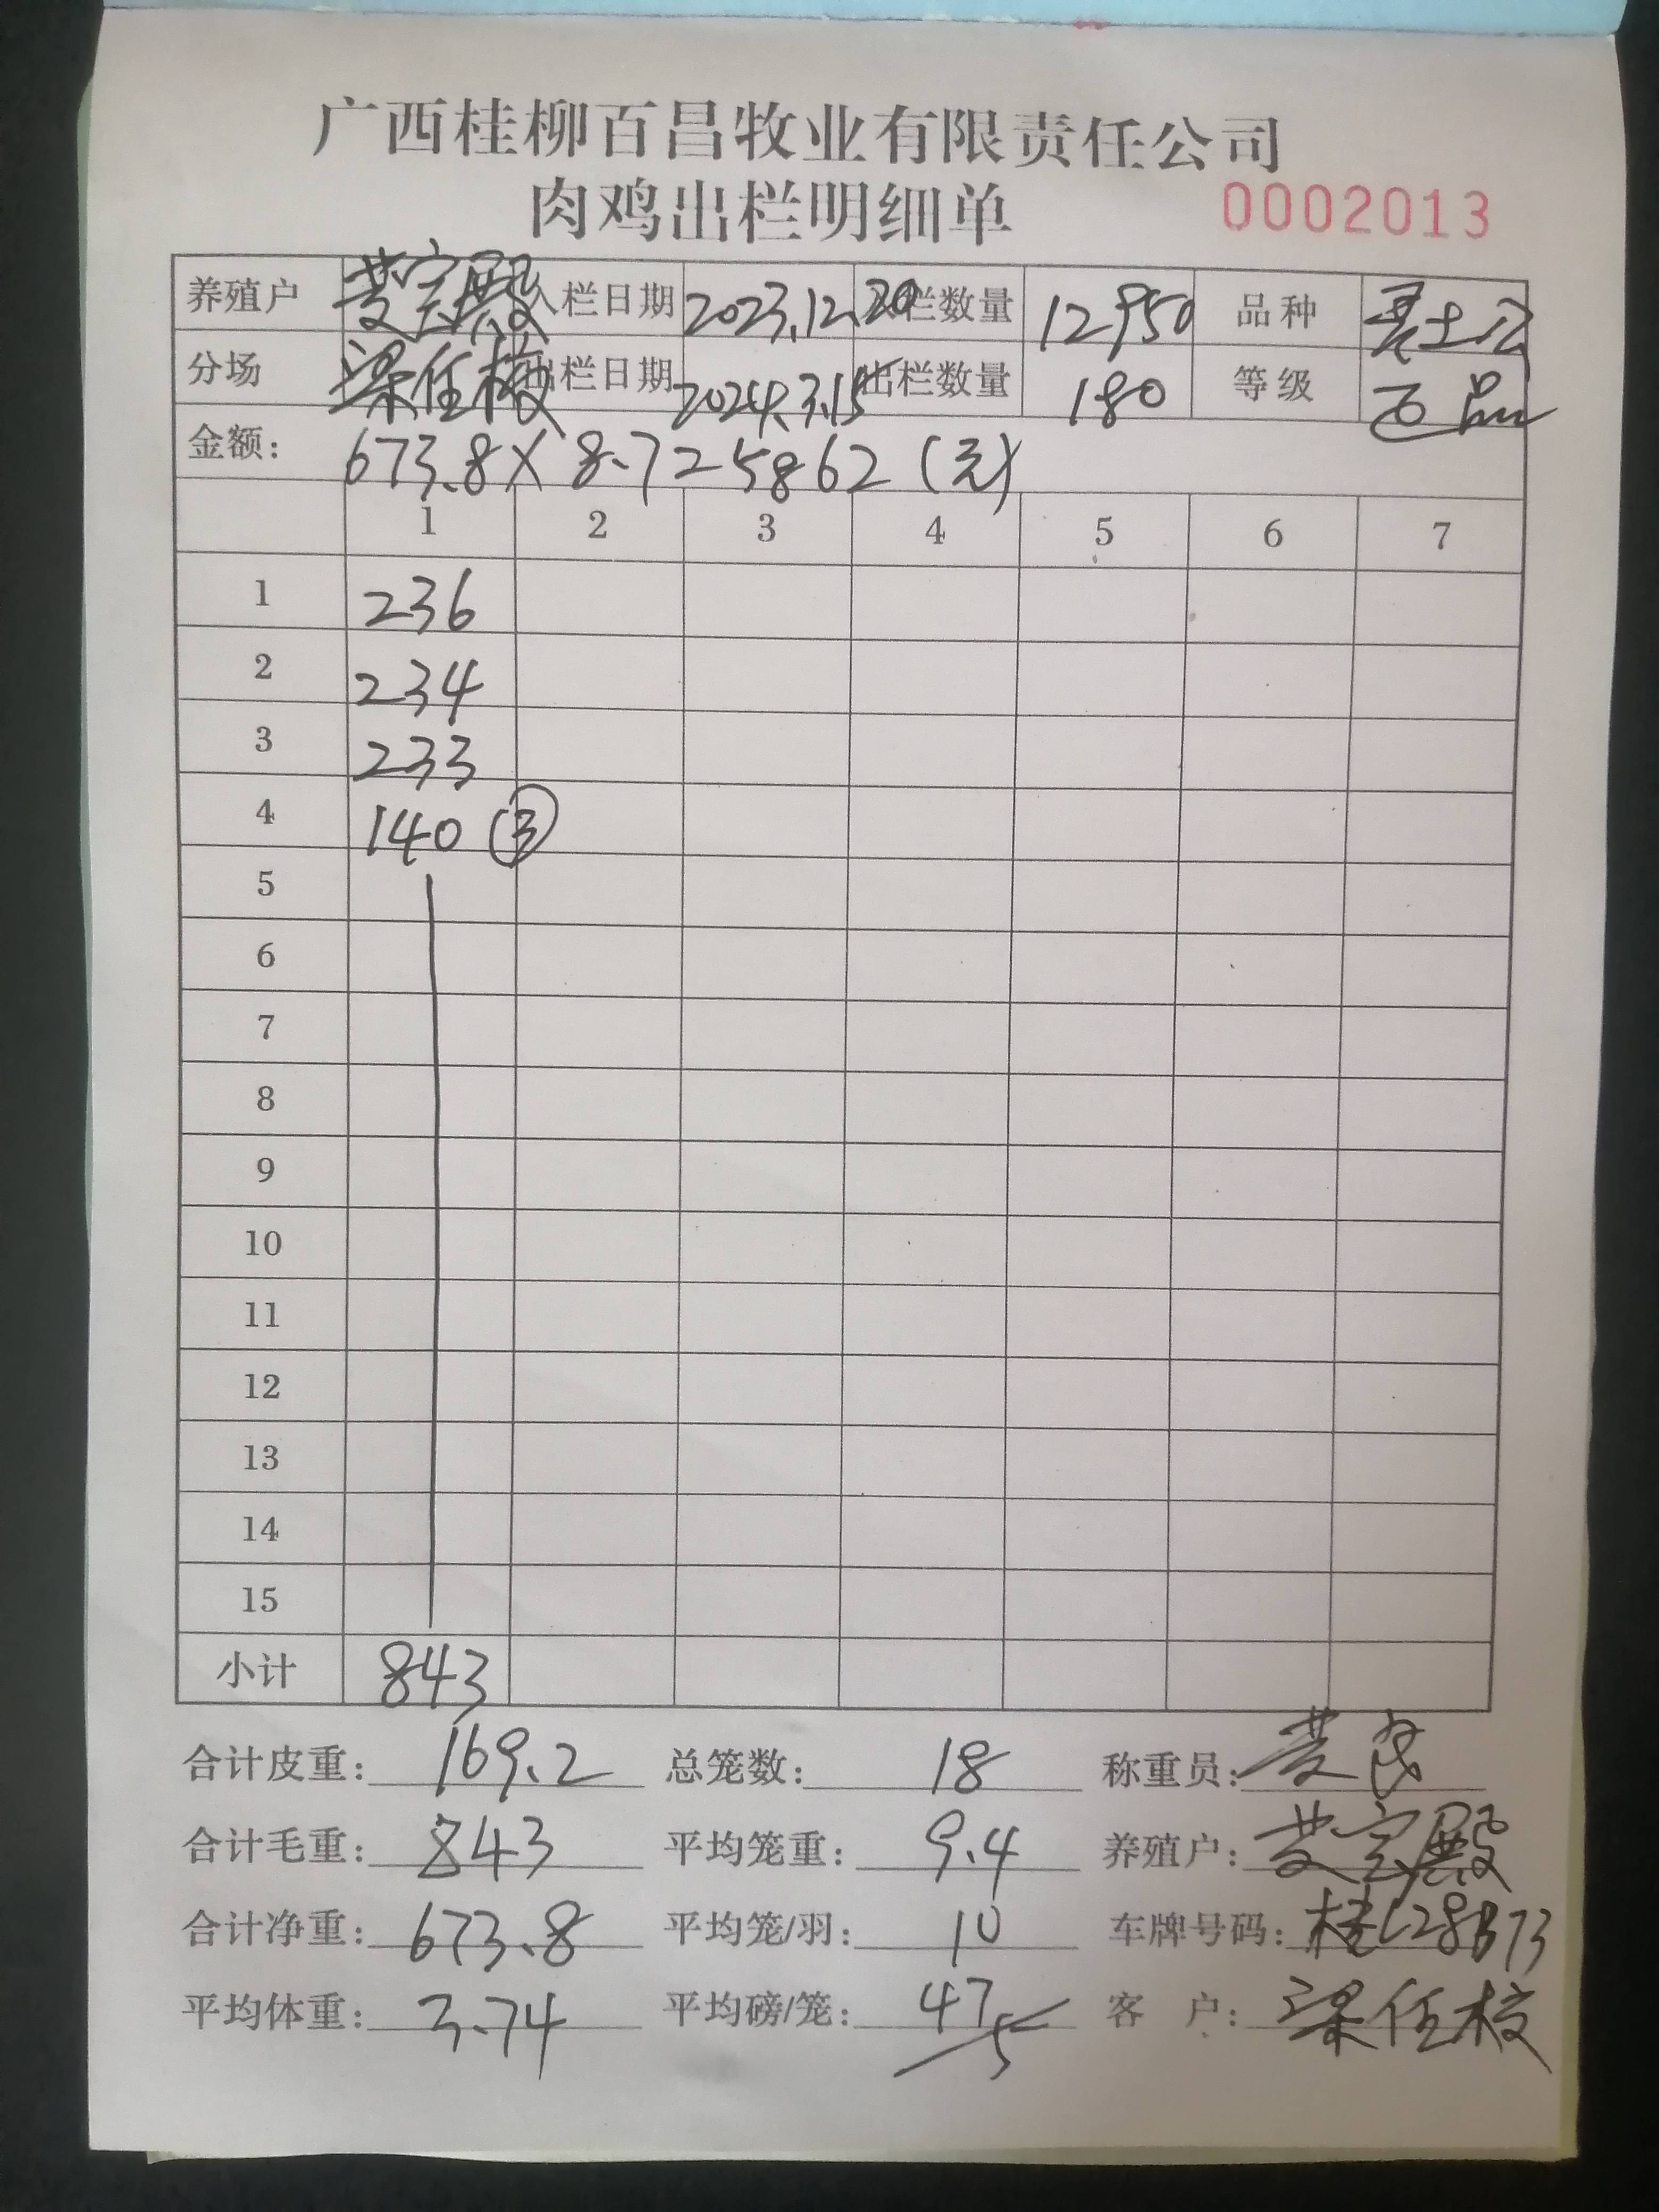 广西桂柳百昌牧业有限责任公司
肉鸡出栏明细单 0002013
养殖户 黄宝殿 入栏日期 2023.12.20 入栏数量 12950 品种 土公
分场 梁任枝 出栏日期 2024.3.15 出栏数量 180 等级 正品
金额: 673.8×8.7=5862(元)
1 2 3 4 5 6 7
1 236
2 234
3 233
4 140 ③
5
6
7
8
9
10
11
12
13
14
15
小计 843
合计皮重: 169.2 总笼数: 18 称重员: 黄
合计毛重: 843 平均笼重: 9.4 养殖户: 黄宝殿
合计净重: 673.8 平均笼/羽: 10 车牌号码: 桂C28B73
平均体重: 3.74 平均磅/笼: 47/5 客 户: 梁任枝